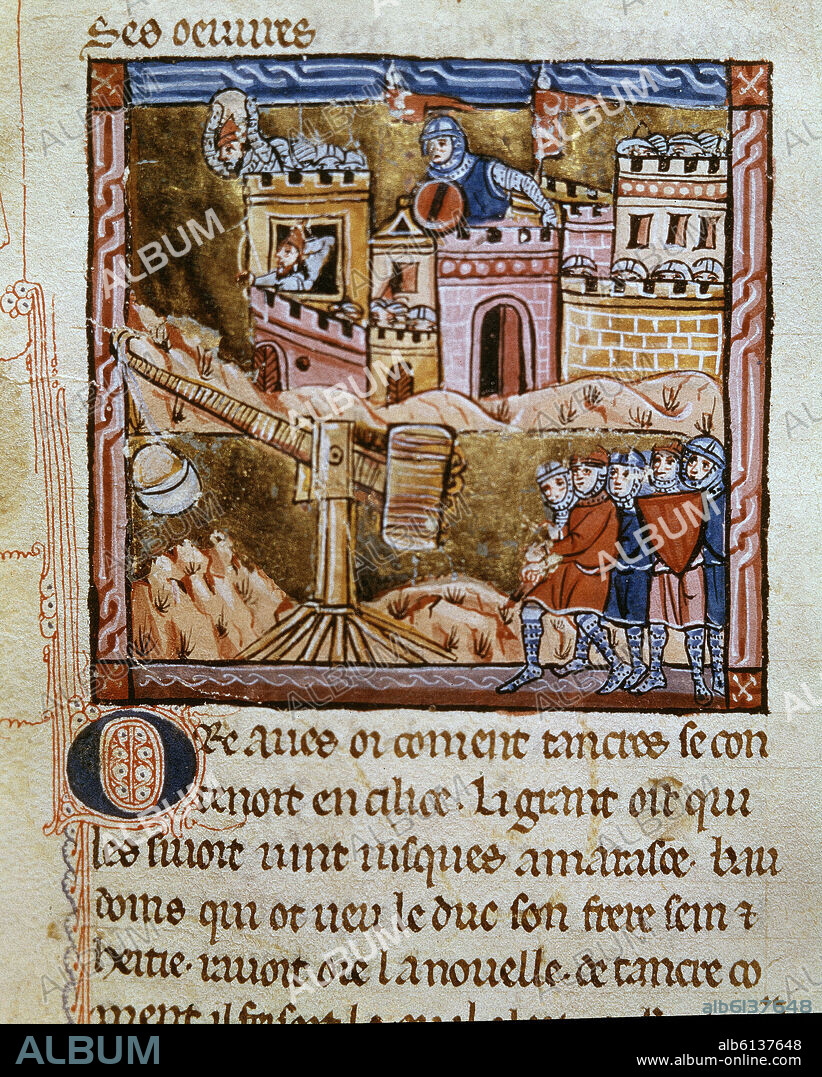 Ses oeuures
ORe aues oi coment tancres se con
tenoit en cilice. Li grant ost qui
les siuoit uint iusques a marasce. bau
doins qui ot ueu le duc son frere sein &
heitie. rauoit oie la nouelle. de tancre co
ment il
ALBUM
alb6137648
ALBUM
alb6137648
www.album-online.com